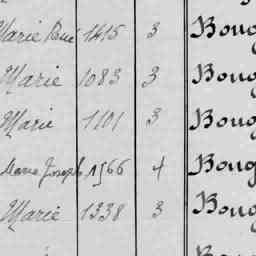 Marie René 1415 3 Boug
Marie 1083 3 Boug
Marie 1101 3 Boug
Marie Joseph 1566 4 Boug
Marie 1338 3 Boug